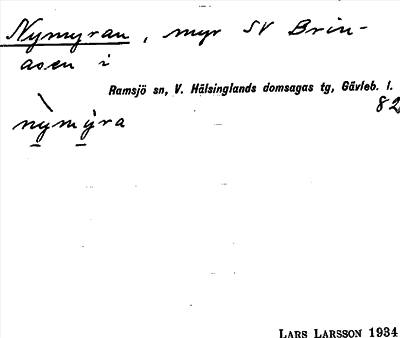 Nymyran, myr SV Brin-
åsen i
Ramsjö sn, V. Hälsinglands domsagas tg, Gävleb. l.
82
nỳmýra
LARS LARSSON 1934